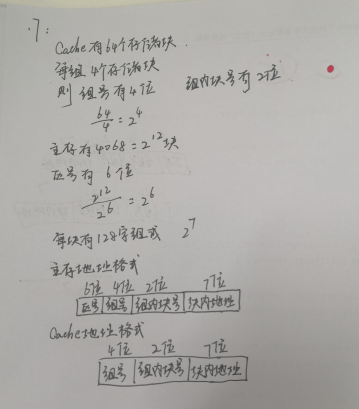 7:
Cache有64个存储块.
每组4个存储块
则 组号有4位 组内块号有2位
64/4 = 2^4
主存有4068=2^12块
区号有 6位
2^12/2^6 = 2^6
每块有128字组成 2^7
主存地址格式
6位 4位 2位 7位
区号 组号 组内块号 块内地址
Cache地址格式
4位 2位 7位
组号 组内块号 块内地址